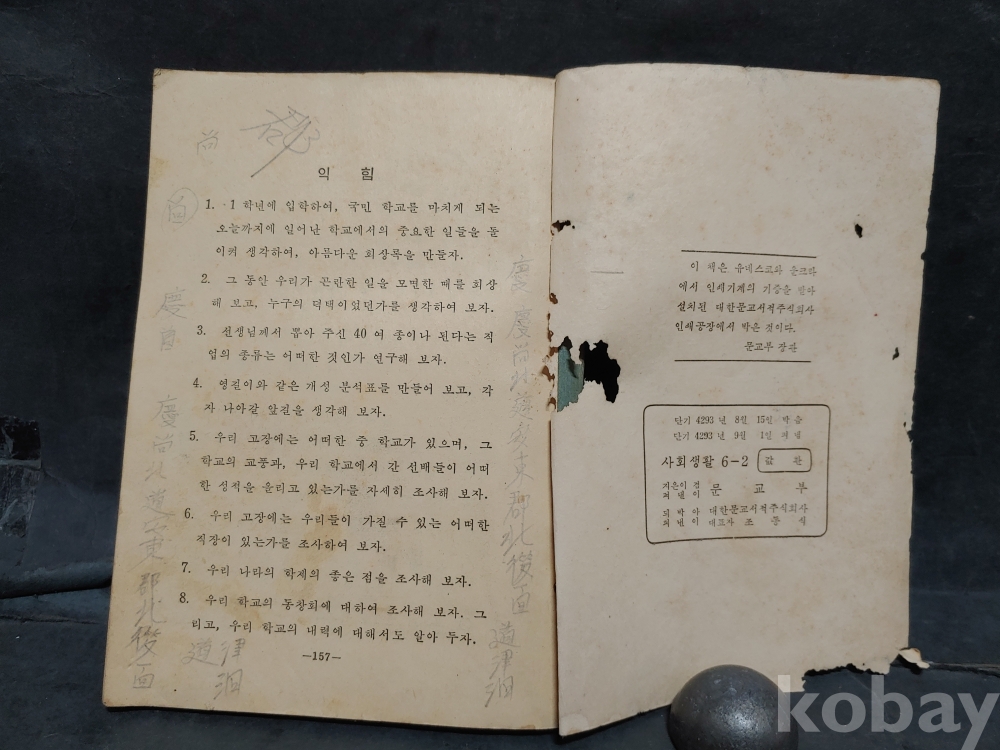 익 힘
1. 1 학년에 입학하여, 국민 학교를 마치게 되는
오늘까지에 일어난 학교에서의 중요한 일들을 돌
이켜 생각하여, 아름다운 회상록을 만들자.
2. 그 동안 우리가 곤란한 일을 모면한 때를 회상
해 보고, 누구의 덕택이었던가를 생각하여 보자.
3. 선생님께서 뽑아 주신 40 여 종이나 된다는 직
업의 종류는 어떠한 것인가 연구해 보자.
4. 영길이와 같은 개성 분석표를 만들어 보고, 각
자 나아갈 앞길을 생각해 보자.
5. 우리 고장에는 어떠한 중 학교가 있으며, 그
학교의 교풍과, 우리 학교에서 간 선배들이 어떠
한 성적을 올리고 있는가를 자세히 조사해 보자.
6. 우리 고장에는 우리들이 가질 수 있는 어떠한
직장이 있는가를 조사하여 보자.
7. 우리 나라의 학제의 좋은 점을 조사해 보자.
8. 우리 학교의 동창회에 대하여 조사해 보자. 그
리고, 우리 학교의 내력에 대해서도 알아 두자.
—157—
尚
慶
慶尚北道安東郡北後面
道津洞
慶
慶尚北道安東郡北後面
道津洞
이 책은 유네스코와 운크라
에서 인쇄기계의 기증을 받아
설치된 대한문교서적주식회사
인쇄공장에서 박은 것이다.
문교부 장관
단기 4293 년 8월 15일 박음
단기 4293 년 9월 1일 펴냄
사회생활 6-2
값 환
지은이 겸
펴낸이 문 교 부
박아 대한문교서적주식회사
펴낸이 대표자 조
kobay